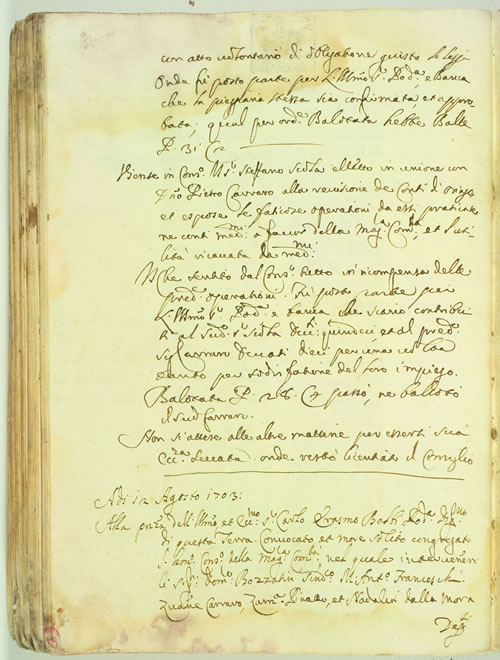 con atto volontario di obligatione giusto le leggi
Onde fù posto parte per l'Illmo Sr. Podà. e Banca
che la pieggiaria stessa sia confirmata, et appro-
bata, qual per ordo. Balotata hebbe Balle
P. 31 C. 2
Venute in Conso. Mr. Steffano Scola elletto in unione con
Dno. Pietro Carraro alla revisione de Conti di
et espose le faticose operationi da essi praticate
ne conti medmi. a favor della Maga. Comtà. et l'uti-
lità ricavata da medmi.
Il che sentito dal Conso. tutto in ricompensa delle
predte. operationi. Fù posta parte per
l'Illmo Sr. Podà. e banca che siano contribui-
ti al sudo. Sr. Scola Ducti. quindeci et al predo.
Sigr. Carraro Ducati dieci per una volta
tanto per sodisfatione del loro impiego.
Balotata P. 28. C. 2 passò, ne ballotò
il sudo Carraro.
Non si attese alle altre materie per essersi sua
Ecca. Levata onde restò licentiato il Consiglio
Adi 12 Agosto 1703:
Alla preza. dell'Illmo et Ecmo. Sr. Carlo Erasmo Podà. Digmo
di questa Terra. Convocato et more solito congregato
Conso. della Maga. Comtà., nel quale intervenero
li Sri. Domo. Bozzatin Sinco. M. Anto. Franceschi
Zuane Carraro, Zammo. et Nadalin dalla Mora